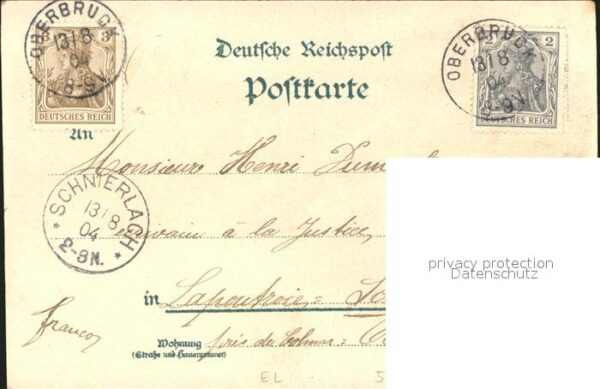 OBERBRUCK
13/8
04
8-9V
3 3
DEUTSCHES REICH
Deutsche Reichspost
Postkarte
OBERBRUCK
13/8
04
8-9V
2 2
DEUTSCHES REICH
An
Monsieur Henri
SCHNIERLACH
13/8
04
2-3N.
écrivain à la Justice,
in Lapoutroie =
Franco
Wohnung
(Straße und Hausnummer)
près de Colmar =
privacy protection
Datenschutz
EL
5